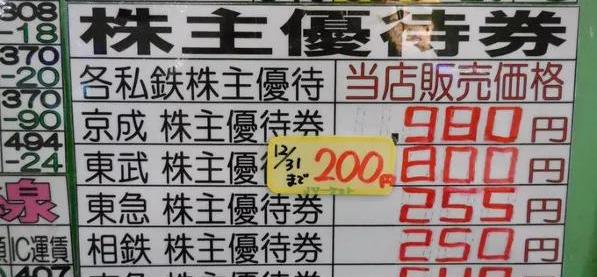 308
-18
370
-20
370
-90
494
-24
線
IC運賃
407
株主優待券
各私鉄株主優待 当店販売価格
京成 株主優待券 980円
東武 株主優待券 800円
12/31まで 200円
東急 株主優待券 255円
相鉄 株主優待券 250円